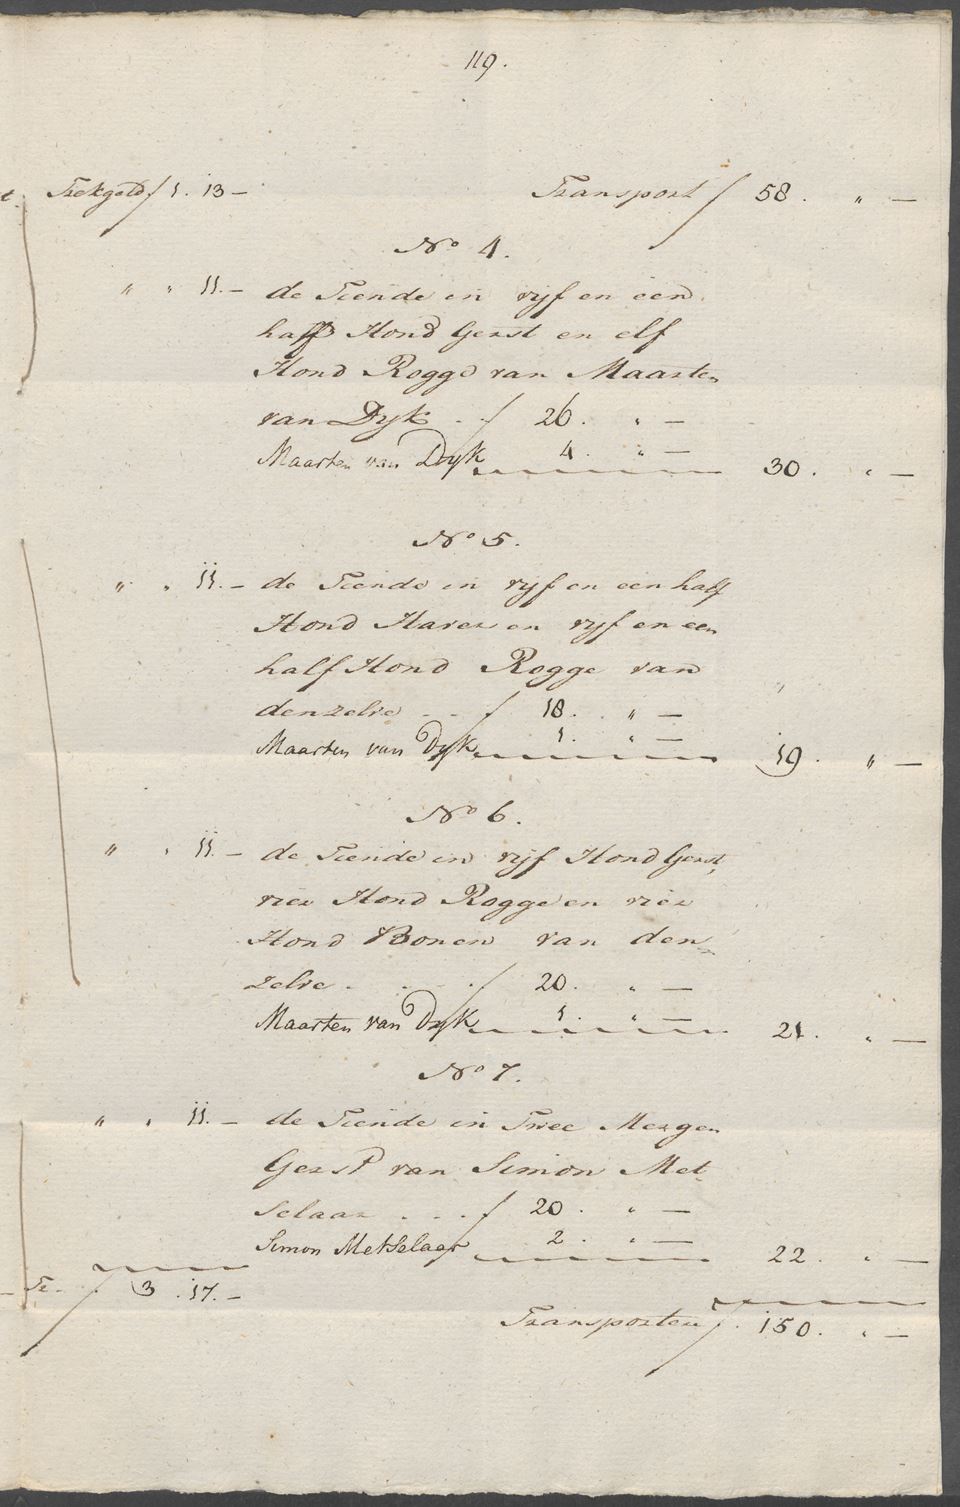 119.
Trekgeld ƒ 1. 13 – Transport ƒ 58. „ –
No 4.
„ „ 11. – de Tiende in vijf en een
half Hond Gerst en elf
Hond Rogge van Maarten
van Dijk . ƒ 26. „ –
Maarten van Dyk 4. „ – 30. „ –
No 5.
„ „ 11. – de Tiende in vijf en een half
Hond Haver en vijf en een
half Hond Rogge van
denzelve . . ƒ 18. „ –
Maarten van Dyk 1. „ – 19. „ –
No 6.
„ „ 11. – de Tiende in vijf Hond Gerst,
vier Hond Rogge en vier
Hond Bonen van den
zelve . . . ƒ 20. „ –
Maarten van Dyk 1. „ – 21. „ –
No 7.
„ „ 11. – de Tiende in Twee Mergen
Gerst van Simon Met
selaar . . . ƒ 20. „ –
Simon Metselaar 2. „ – 22. „ –
Tr. ƒ 3. 17. –
Transporten ƒ 150. „ –